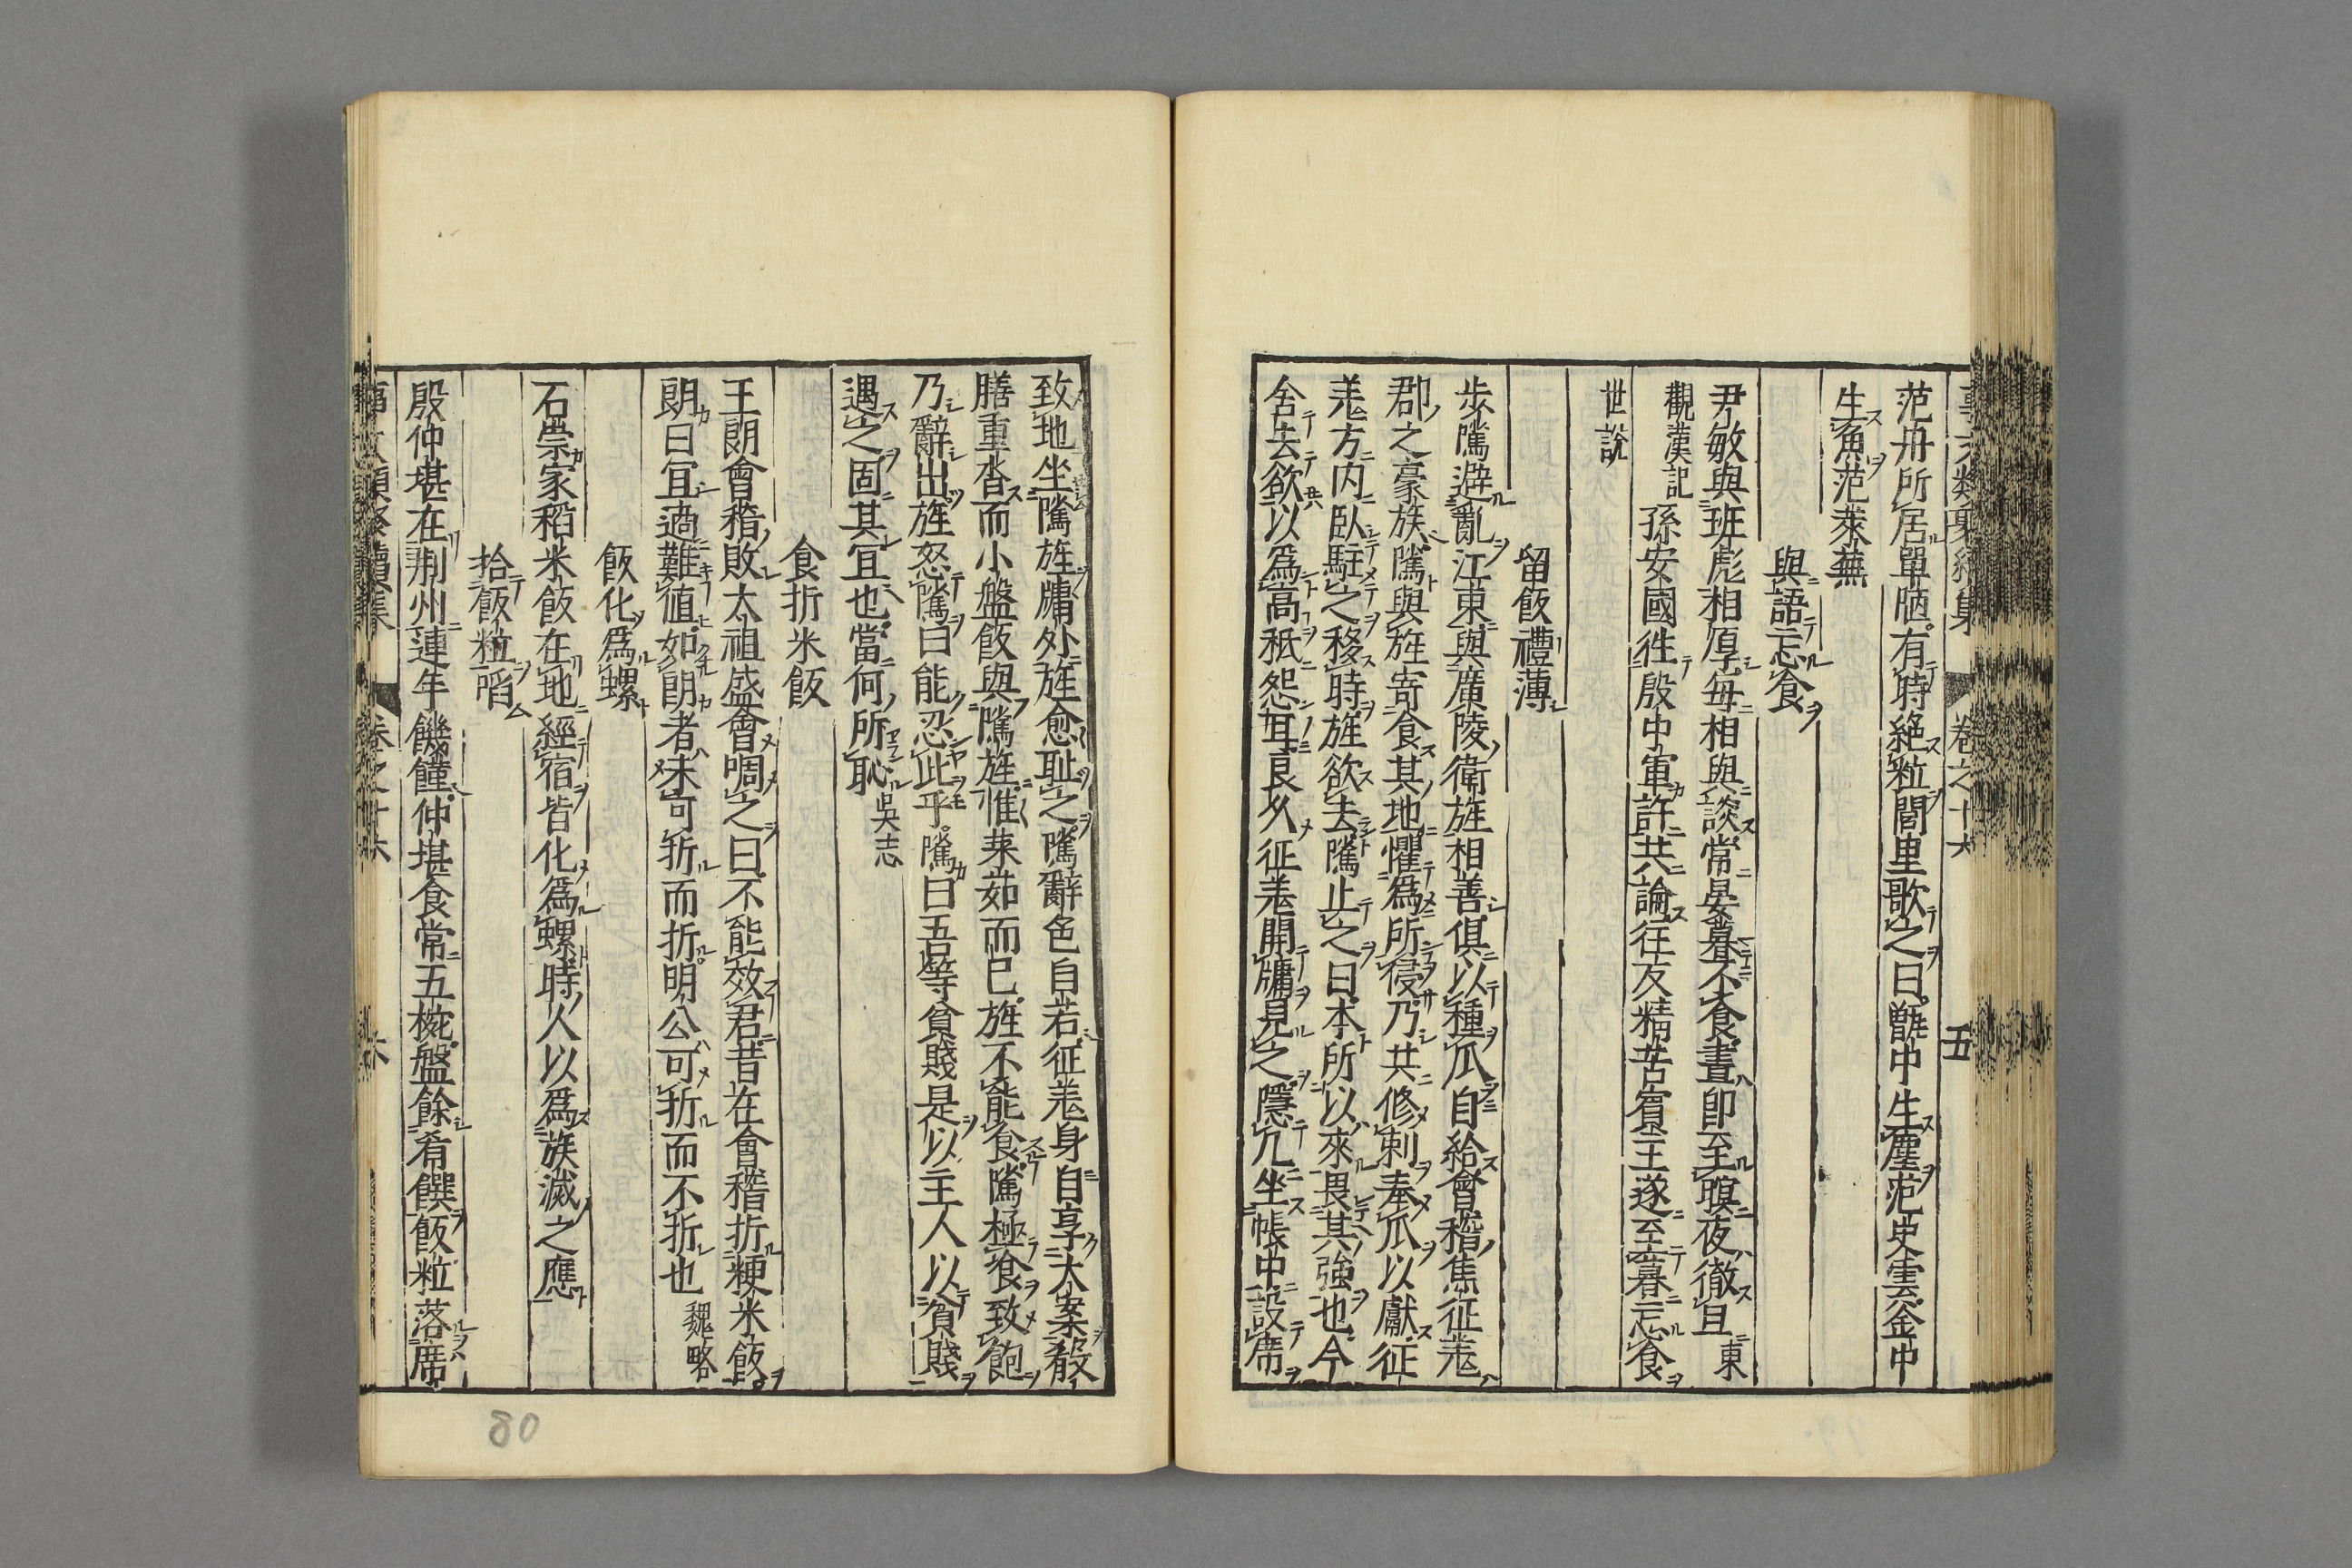 卷之十六
五
范冉所居單陋有時絶粒閭里歌之曰甑中生塵范史雲釜中
生魚范萊蕪
與語忘食
尹敏與班彪相厚每相與談常晏暮不食晝即至暝夜徹旦東
觀漢記
孫安國徃殷中軍許共論往反精苦賓主遂至暮忘食
世説
留飯禮薄
歩隲避亂江東與廣陵衛旌相善俱以種瓜自給會稽焦征羗
郡之豪族隲與旌寄食其地懼爲所侵乃共修刺奉瓜以獻征
羗方内臥駐之移時旌欲去隲止之曰本所以來畏其強也今
舎去欲以爲高秪怨耳良乆征羗開牖見之隱几坐帳中設席
致地坐隲旌牖外旌愈耻之隲辭色自若征羗身自享大案殽
膳重沓而小盤飯與隲旌惟菜茹而已旌不能食隲極飡致飽
乃辭出旌怒隲曰能忍此乎隲曰吾等貧賤是以主人以貧賤
遇之固其冝也當何所恥吳志
食折米飯
王朗會稽敗太祖盛會啁之曰不能效君昔在會稽折粳米飯
朗曰冝適難値如朗者未可折而折明公可折而不折也魏略
飯化爲螺
石崇家稻米飯在地經宿皆化爲螺時人以爲族滅之應
拾飯粒啗
殷仲堪在荆州連年饑饉仲堪食常五椀盤餘肴饌飯粒落席
卷之十六
六
80